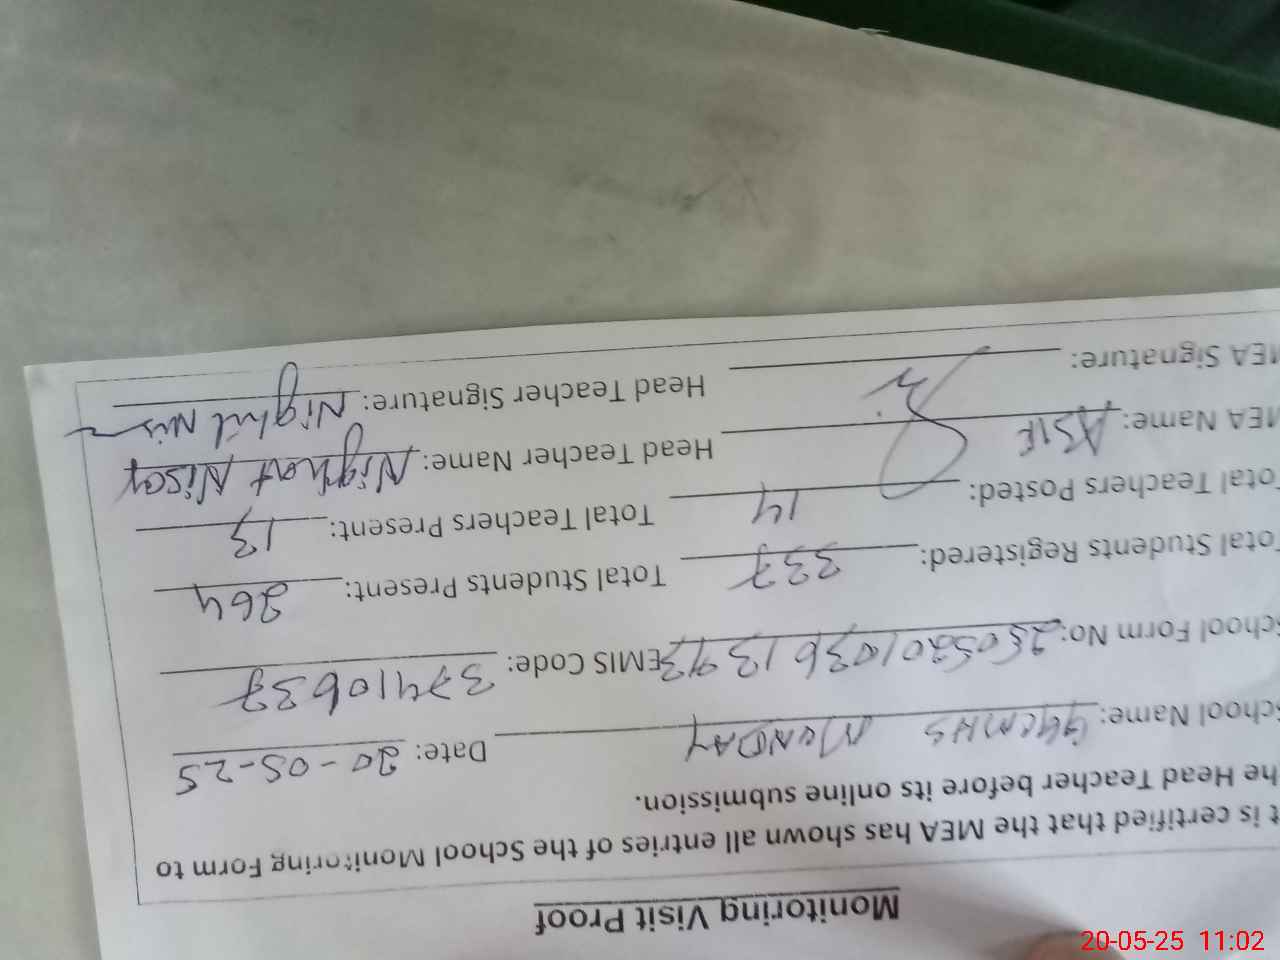 Monitoring Visit Proof
t is certified that the MEA has shown all entries of the School Monitoring Form to
he Head Teacher before its online submission.
School Name: MUNDAY Date: 20-05-25
School Form No: EMIS Code: 37410637
Total Students Registered: 337 Total Students Present: 264
Total Teachers Posted: 14 Total Teachers Present: 13
MEA Name: ASIF Head Teacher Name: Nighat Nisar
MEA Signature: Head Teacher Signature: Nighat Nisar
20-05-25 11:02